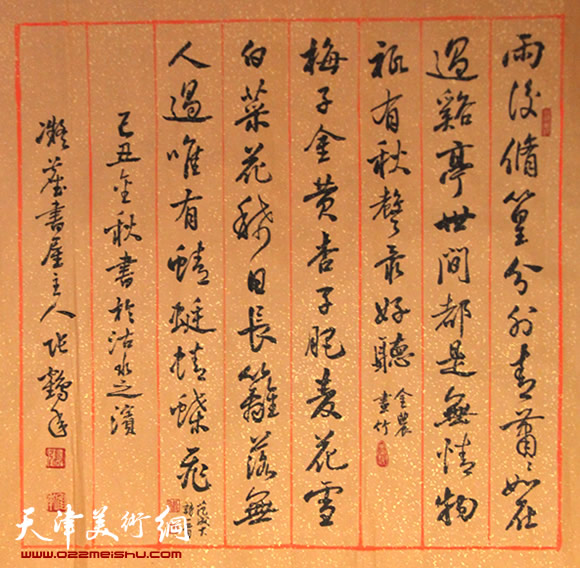 雨後脩篁分外青蕭蕭如在
過谿亭世間都是無情物
衹有秋聲最好聽
金農
畫竹
梅子金黃杏子肥麦花雪
白菜花稀日長籬落無
人過唯有蜻蜓蛺蝶飛
范成大
己丑金秋書於沽水之濱
凝廬書屋主人張鶴年
天津美術網
www.022meishu.com